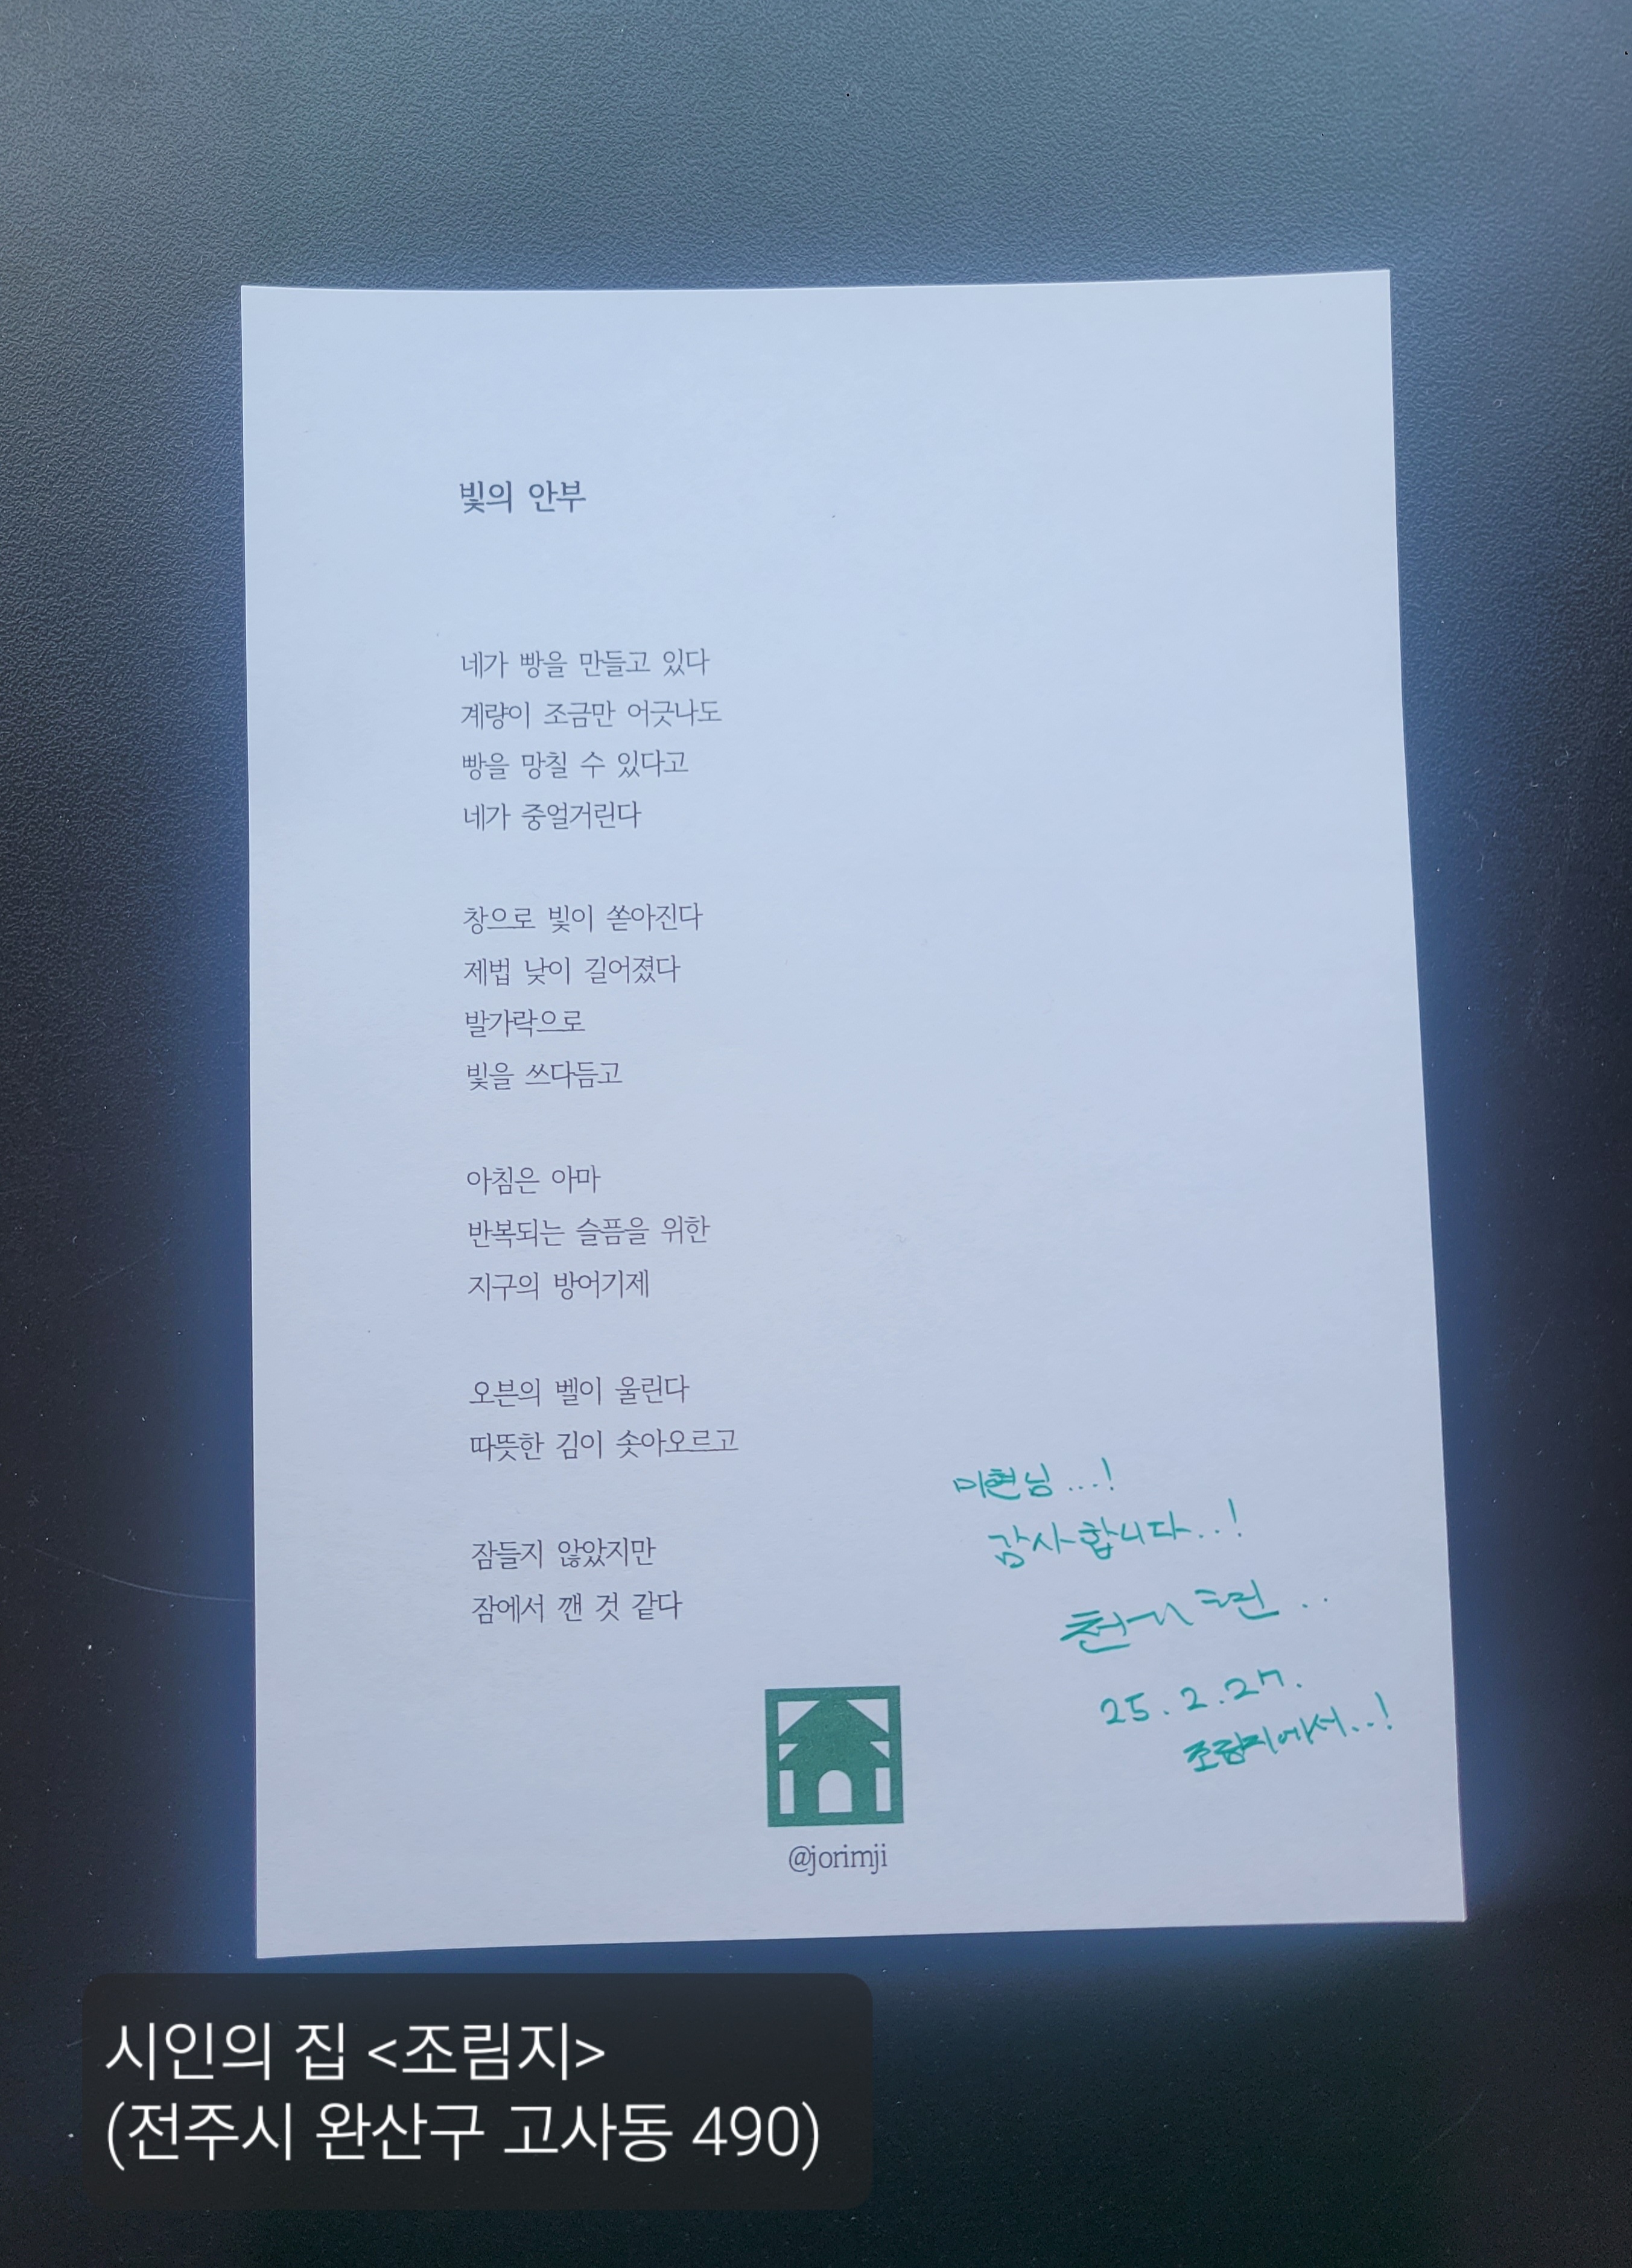 빛의 안부
네가 빵을 만들고 있다
계량이 조금만 어긋나도
빵을 망칠 수 있다고
네가 중얼거린다
창으로 빛이 쏟아진다
제법 낮이 길어졌다
발가락으로
빛을 쓰다듬고
아침은 아마
반복되는 슬픔을 위한
지구의 방어기제
오븐의 벨이 울린다
따뜻한 김이 솟아오르고
잠들지 않았지만
잠에서 깬 것 같다
미현님...!
감사합니다..!
25.2.27.
조림지에서..!
@jorimji
시인의 집 <조림지>
(전주시 완산구 고사동 490)